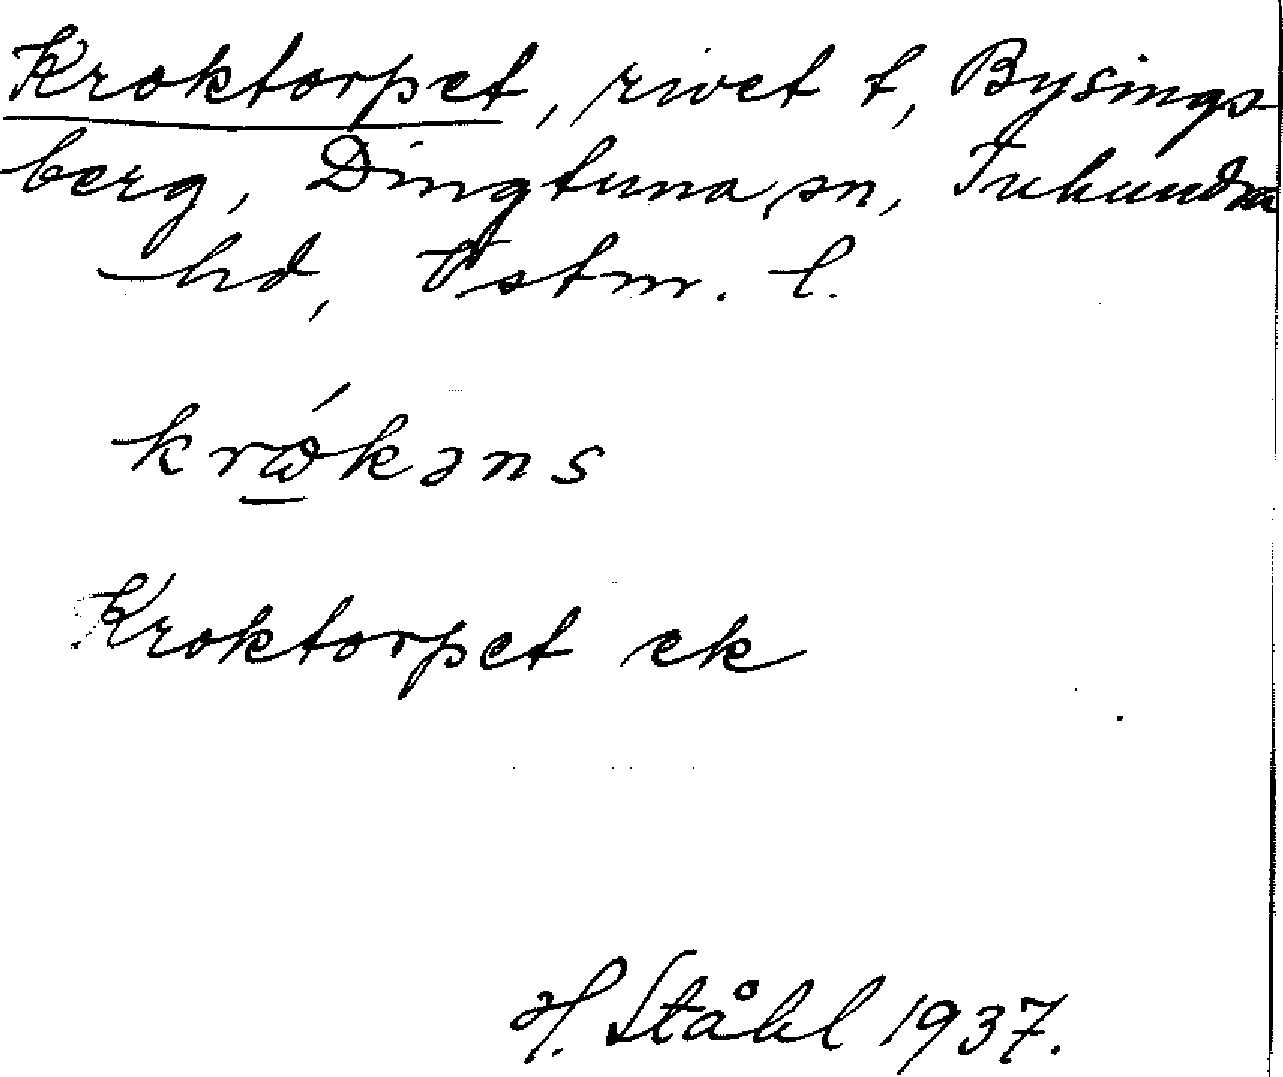 Kroktorpet, rivet t, Bysings-
berg, Dingtuna sn, Tuhundra
hd, Vstm. l.
krǿkəns
Kroktorpet ek
H. Ståhl 1937.